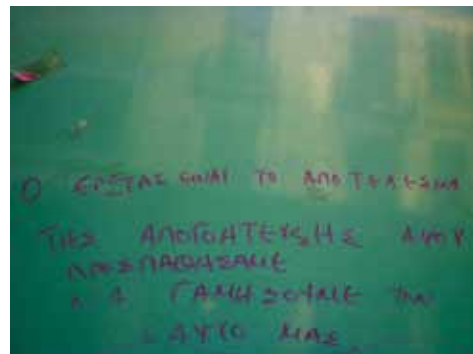 Ο ΕΡΩΤΑΣ ΕΙΝΑΙ ΤΟ ΑΠΟΤΕΛΕΣΜΑ
ΤΗΣ ΑΠΟΓΟΗΤΕΥΣΗΣ ΑΦΟΥ
ΠΡΟΣΠΑΘΗΣΑΜΕ
ΝΑ ΓΑΜΗΣΟΥΜΕ ΤΟΝ
ΕΑΥΤΟ ΜΑΣ